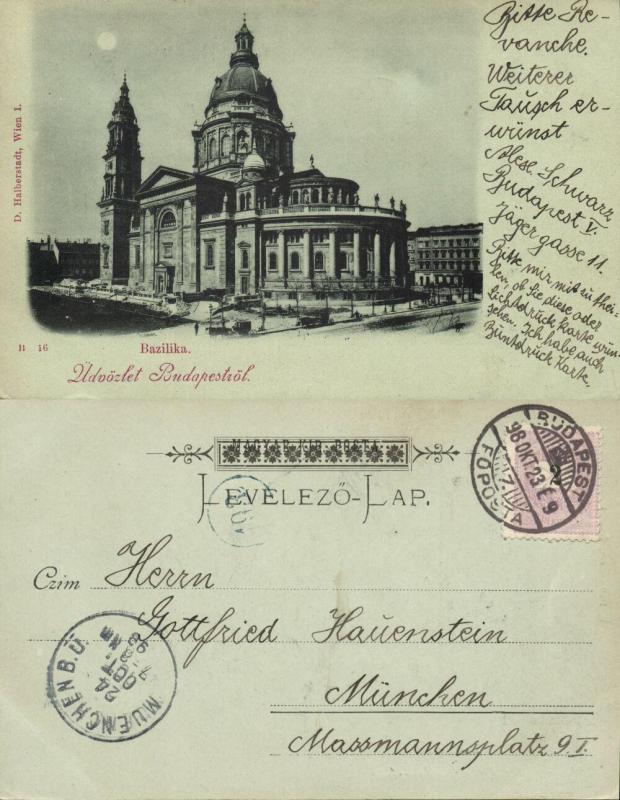 Bitte Re-
vanche.
Weiterer
Tausch er-
wünst
Schwarz
Budapest V.
Jägergasse 11.
Bitte mir mitzuthei-
len, ob Sie diese oder
Lichtdruckkarte wün-
schen. Ich habe auch
Buntdruck Karte.
D. Halberstadt, Wien I.
B 16
Bazilika.
Üdvözlet Budapestről.
MAGYAR KIR. POSTA
LEVELEZŐ-LAP.
BUDAPEST
98 OKT. 23 E 9
FŐPOSTA
2
Czim
Herrn
Gottfried Hauenstein
München
Massmannsplatz 9 I.
MUENCHEN B.Ü.
24
OCT.
98